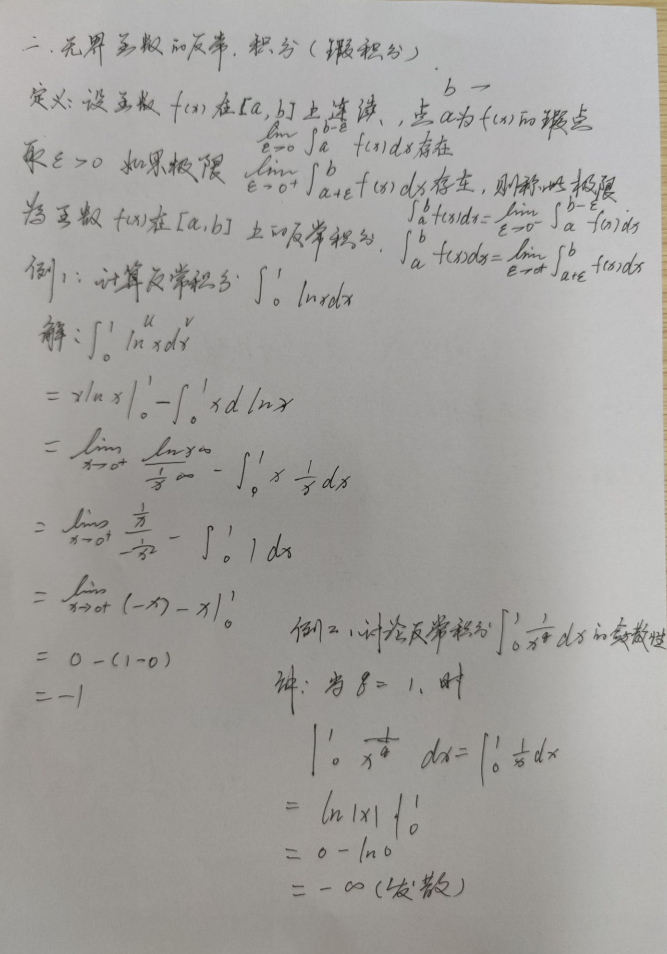 二.无界函数的反常.积分(瑕积分).
b →
定义:设函数 f(x) 在[a,b]上连续、,点a为f(x)的瑕点
lim ε→0 ∫_a^{b-ε} f(x)dx存在
取ε>0 如果极限 lim ε→0⁺ ∫_{a+ε}^b f(x)dx存在,则称此极限
∫_a^b f(x)dx = lim ε→0⁻ ∫_a^{b-ε} f(x)dx
为函数 f(x)在[a,b] 上的反常积分. ∫_a^b f(x)dx = lim ε→0⁺ ∫_{a+ε}^b f(x)dx
例1:计算反常积分 ∫_0^1 lnxdx
u v
解:∫_0^1 lnxdx
= xlnx|_0^1 - ∫_0^1 xd lnx
= lim x→0⁺ lnx ∞ / (1/x) ∞ - ∫_0^1 x 1/x dx
= lim x→0⁺ (1/x)/(-1/x²) - ∫_0^1 1dx
= lim x→0⁺ (-x) - x|_0^1
= 0-(1-0)
= -1
例2、讨论反常积分∫_0^1 1/x^q dx的敛散性
解:当q= 1、时
∫_0^1 1/x^q dx = ∫_0^1 1/x dx
= ln|x| |_0^1
= 0-ln0
= -∞(发散)